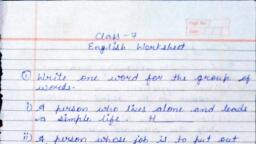 Page No.
Date
Class - 7
English Worksheet
① Write one word for the group of
words.
i) A person who lives alone and leads
a simple life. H
ii) A person whose job is to put out